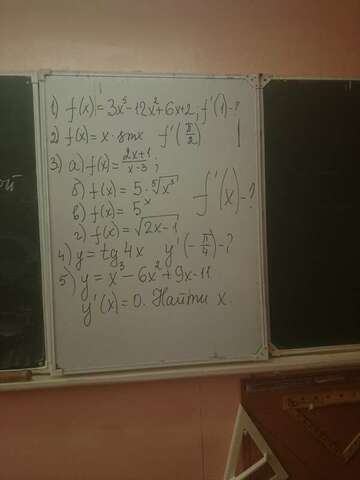 1) f(x)=3x³-12x²+6x+2, f'(1)-?
2) f(x)=x·sinx f'(π/2)
3) а) f(x)=(2x+1)/(x-3);
б) f(x)=5·⁵√x³
в) f(x)=5ˣ
г) f(x)=√(2x-1)
f'(x)-?
4) y=tg4x y'(-π/4)-?
5) y=x³-6x²+9x-11
y'(x)=0. Найти x.
ой